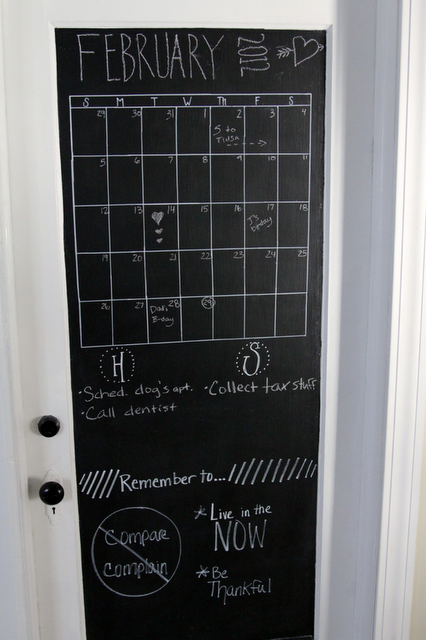 FEBRUARY 2012
S M T W Th F S
29 30 31 1 2 3 4
S to
Tulsa
5 6 7 8 9 10 11
12 13 14 15 16 17 18
J's
b'day
19 20 21 22 23 24 25
26 27 28 29
Dad's
B-day
H S
· Sched. dog's apt. · Collect tax stuff
· Call dentist
Remember to...
Compare
Complain
* Live in the
NOW
* Be
Thankful